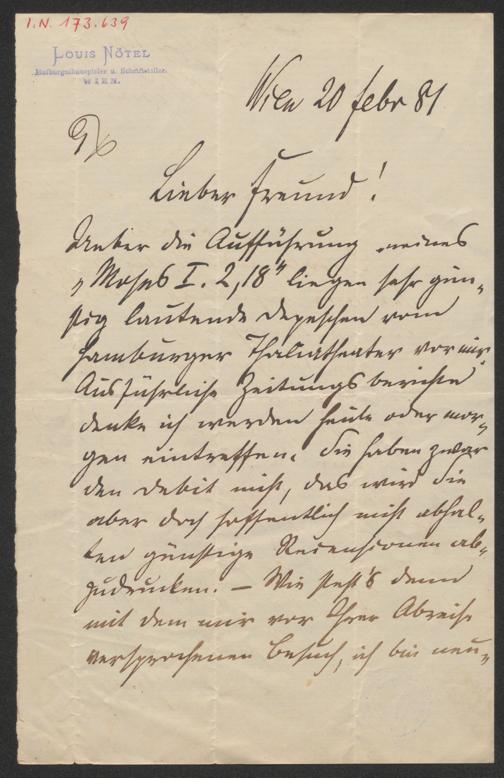 I.N. 173.639
LOUIS NÖTEL
Hofburgschauspieler u. Schriftsteller.
WIEN.
Wien 20 febr 81
Lieber Freund!
Ueber die Aufführung meines
„Moses I. 2,18" liegen sehr gün-
stig lautende Depeschen vom
Hamburger Thaliatheater vor mir.
Ausführliche Zeitungsberichte
denke ich werden heute oder mor-
gen eintreffen. Sie haben zwar
den Debit nicht, das wird Sie
aber doch hoffentlich nicht abhal-
ten günstige Recensionen ab-
zudrucken. – Wie steht's denn
mit dem mir vor Ihrer Abreise
versprochenen Besuch, ich bin neu-